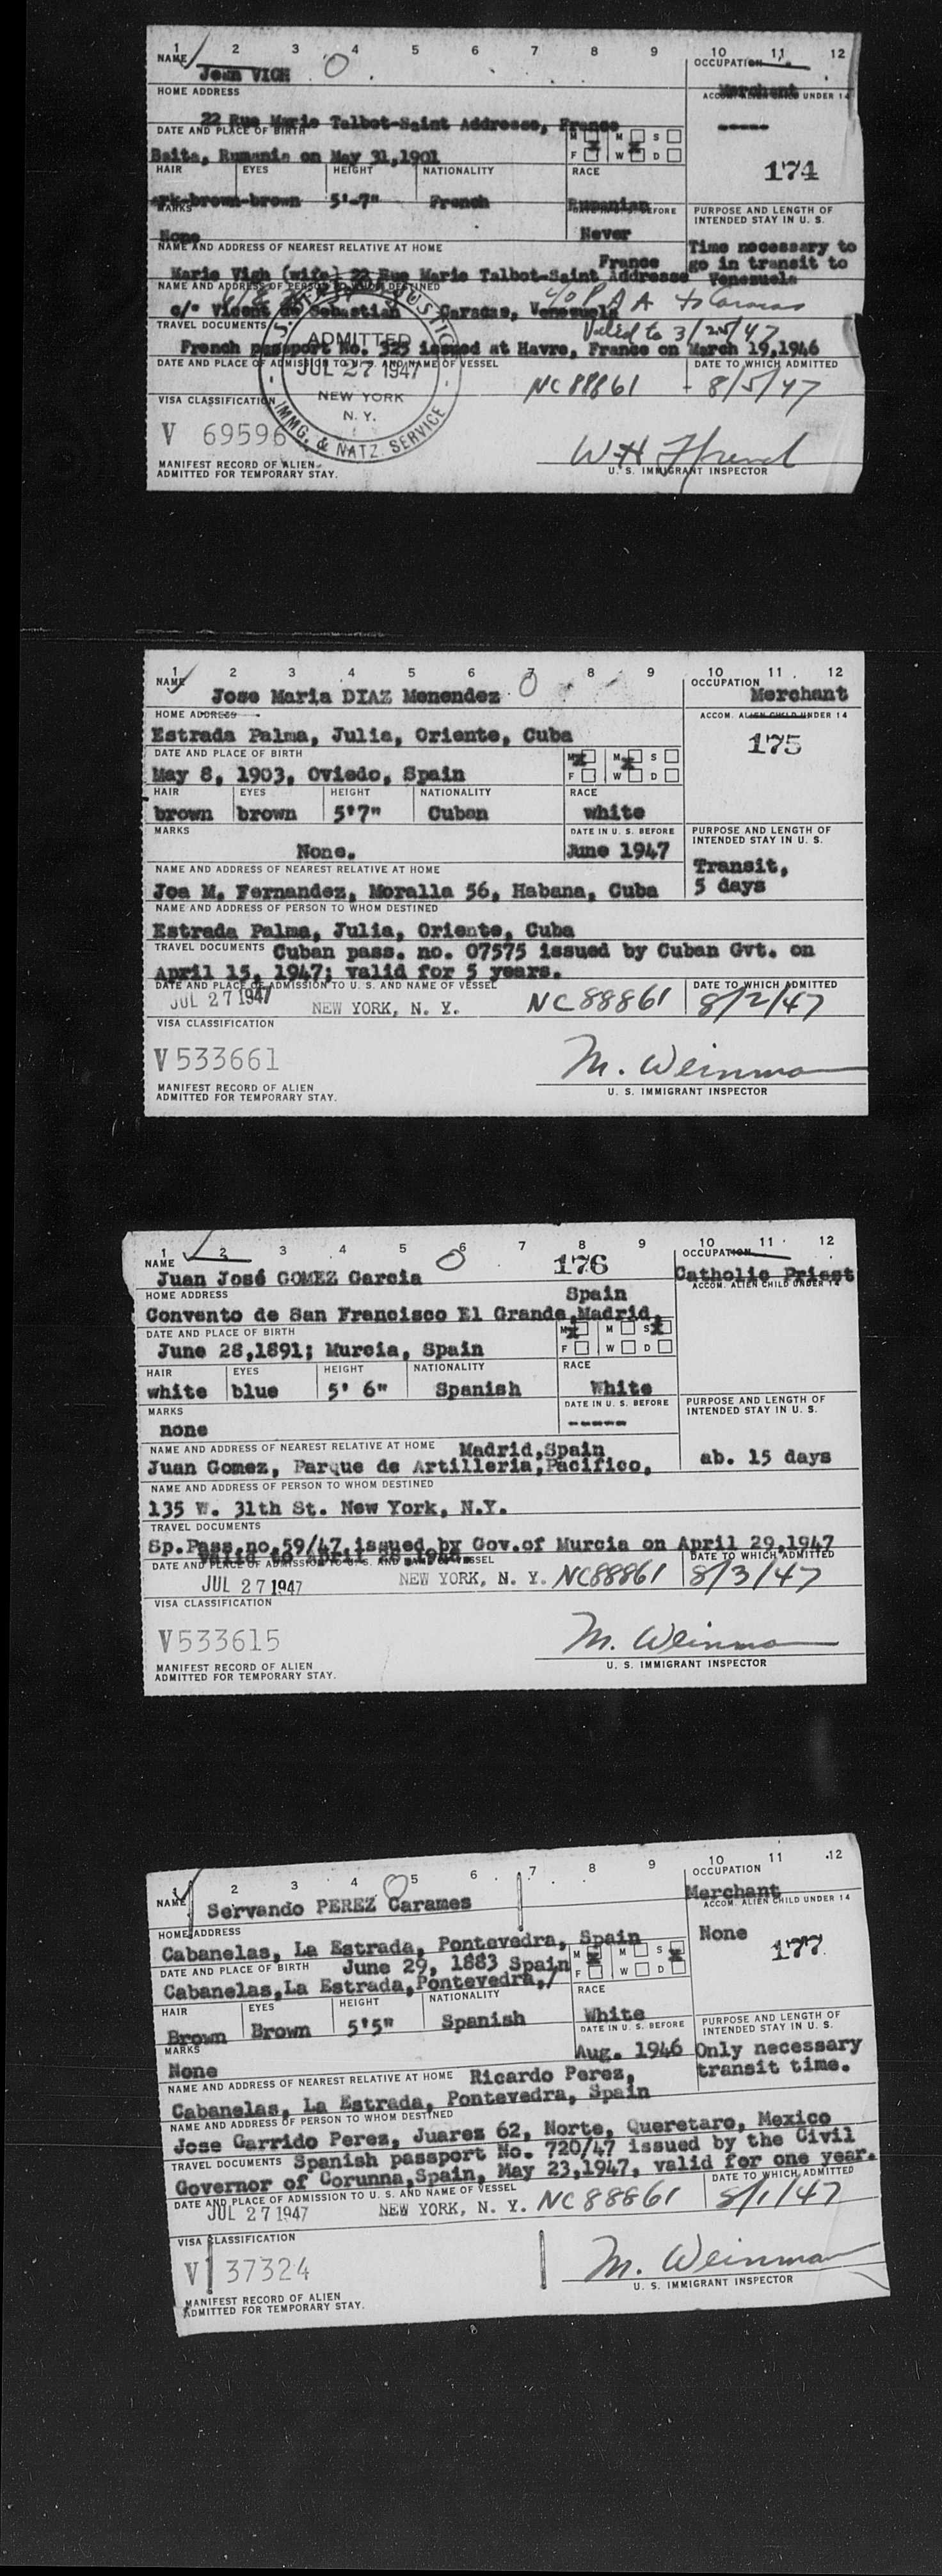 1 2 3 4 5 6 7 8 9 10 11 12
NAME OCCUPATION
Jean VIGH
Merchant
HOME ADDRESS ACCOM. ALIEN CHILD UNDER 14
22 Rue Marie Talbot-Saint Addresse, France -----
DATE AND PLACE OF BIRTH M M S
Baita, Rumania on May 31,1901 F X W X D
174
HAIR EYES HEIGHT NATIONALITY RACE
brown-brown 5'-7" French Rumanian
MARKS BEFORE PURPOSE AND LENGTH OF
INTENDED STAY IN U. S.
None Never
NAME AND ADDRESS OF NEAREST RELATIVE AT HOME Time necessary to
France go in transit to
Marie Vigh (wife) 22 Rue Marie Talbot-Saint Addresse Venezuela
NAME AND ADDRESS OF PERSON TO WHOM DESTINED
c/o Vicent de Sebastian Caracas, Venezuela
TRAVEL DOCUMENTS Valid to 3/25/47
French passport No. 325 issued at Havre, France on March 19,1946
DATE AND PLACE OF ADMISSION TO U. S. AND NAME OF VESSEL DATE TO WHICH ADMITTED
ADMITTED
JUL 27 1947
NEW YORK
N. Y.
IMMG. & NATZ. SERVICE
NC 88861 8/5/47
VISA CLASSIFICATION
V 69596
MANIFEST RECORD OF ALIEN
ADMITTED FOR TEMPORARY STAY. U. S. IMMIGRANT INSPECTOR
1 2 3 4 5 6 7 8 9 10 11 12
NAME OCCUPATION
Jose Maria DIAZ Menendez Merchant
HOME ADDRESS ACCOM. ALIEN CHILD UNDER 14
Estrada Palma, Julia, Oriente, Cuba 175
DATE AND PLACE OF BIRTH M X M X S
May 8, 1903, Oviedo, Spain F W D
HAIR EYES HEIGHT NATIONALITY RACE
brown brown 5'7" Cuban white
MARKS DATE IN U. S. BEFORE PURPOSE AND LENGTH OF
INTENDED STAY IN U. S.
None. June 1947
NAME AND ADDRESS OF NEAREST RELATIVE AT HOME Transit,
Joa M. Fernandez, Moralla 56, Habana, Cuba 5 days
NAME AND ADDRESS OF PERSON TO WHOM DESTINED
Estrada Palma, Julia, Oriente, Cuba
TRAVEL DOCUMENTS Cuban pass. no. 07575 issued by Cuban Gvt. on
April 15, 1947; valid for 5 years.
DATE AND PLACE OF ADMISSION TO U. S. AND NAME OF VESSEL DATE TO WHICH ADMITTED
JUL 27 1947 NEW YORK, N. Y. NC88861 8/2/47
VISA CLASSIFICATION
V533661 M. Weinman
MANIFEST RECORD OF ALIEN
ADMITTED FOR TEMPORARY STAY. U. S. IMMIGRANT INSPECTOR
1 2 3 4 5 6 7 8 9 10 11 12
NAME 176 OCCUPATION
Juan José GOMEZ Garcia Catholic Priest
HOME ADDRESS Spain ACCOM. ALIEN CHILD UNDER 14
Convento de San Francisco El Grande,Madrid,
DATE AND PLACE OF BIRTH M X M S X
June 28,1891; Murcia, Spain F W D
HAIR EYES HEIGHT NATIONALITY RACE
white blue 5' 6" Spanish White
MARKS DATE IN U. S. BEFORE PURPOSE AND LENGTH OF
INTENDED STAY IN U. S.
none -----
NAME AND ADDRESS OF NEAREST RELATIVE AT HOME Madrid,Spain
Juan Gomez, Parque de Artilleria,Pacifico, ab. 15 days
NAME AND ADDRESS OF PERSON TO WHOM DESTINED
135 W. 31th St. New York, N.Y.
TRAVEL DOCUMENTS
Sp.Pass,no,59/47,issued by Gov.of Murcia on April 29,1947
DATE AND PLACE OF ADMISSION TO U. S. AND NAME OF VESSEL DATE TO WHICH ADMITTED
JUL 27 1947 NEW YORK, N. Y. NC88861 8/3/47
VISA CLASSIFICATION
V533615 M. Weinman
MANIFEST RECORD OF ALIEN
ADMITTED FOR TEMPORARY STAY. U. S. IMMIGRANT INSPECTOR
1 2 3 4 5 6 7 8 9 10 11 12
NAME OCCUPATION
Servando PEREZ Carames Merchant
HOME ADDRESS ACCOM. ALIEN CHILD UNDER 14
Cabanelas, La Estrada, Pontevedra, Spain None
177
DATE AND PLACE OF BIRTH June 29, 1883 Spain M X M S X
Cabanelas,La Estrada,Pontevedra,/ F W D
HAIR EYES HEIGHT NATIONALITY RACE
Brown Brown 5'5" Spanish White
MARKS DATE IN U. S. BEFORE PURPOSE AND LENGTH OF
INTENDED STAY IN U. S.
None Aug. 1946 Only necessary
transit time.
NAME AND ADDRESS OF NEAREST RELATIVE AT HOME Ricardo Perez,
Cabanelas, La Estrada, Pontevedra, Spain
NAME AND ADDRESS OF PERSON TO WHOM DESTINED
Jose Garrido Perez, Juarez 62, Norte, Queretaro, Mexico
TRAVEL DOCUMENTS Spanish passport No. 720/47 issued by the Civil
Governor of Corunna,Spain, May 23,1947, valid for one year.
DATE AND PLACE OF ADMISSION TO U. S. AND NAME OF VESSEL DATE TO WHICH ADMITTED
JUL 27 1947 NEW YORK, N. Y. NC88861 8/1/47
VISA CLASSIFICATION
V 37324 M. Weinman
MANIFEST RECORD OF ALIEN
ADMITTED FOR TEMPORARY STAY. U. S. IMMIGRANT INSPECTOR